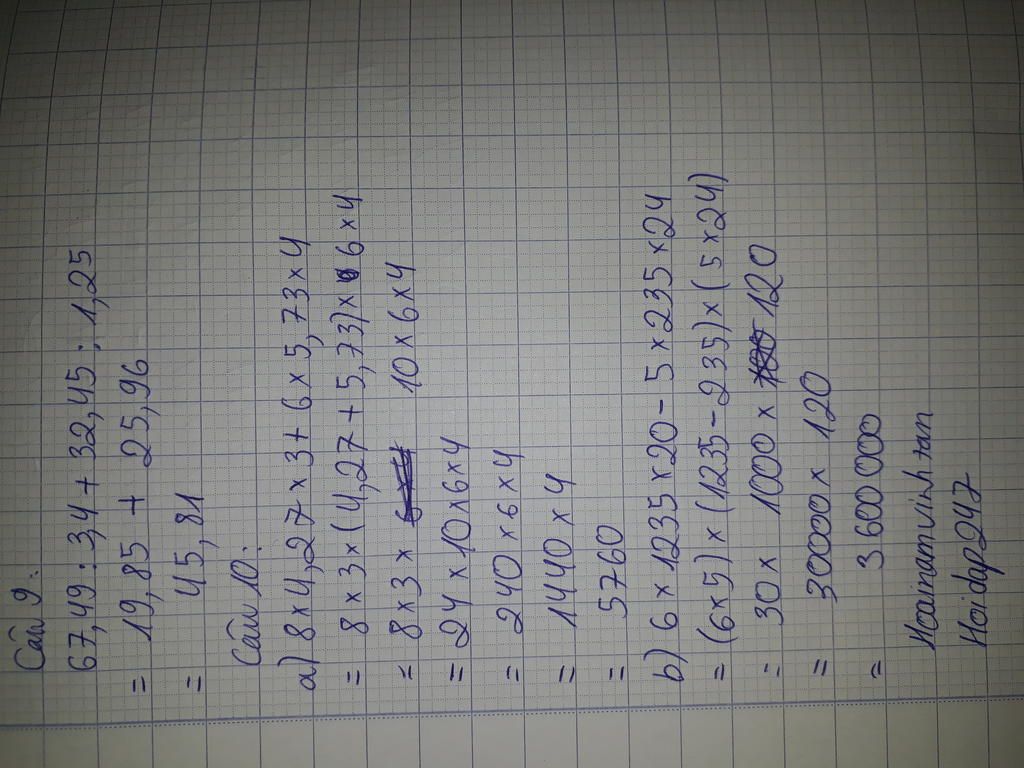 Câu 9:
67,49 : 3,4 + 32,45 : 1,25
= 19,85 + 25,96
= 45,81
Câu 10:
a) 8 x 4,27 x 3 + 6 x 5,73 x 4
= 8 x 3 x (4,27 + 5,73) x 6 x 4
= 8 x 3 x 10 x 6 x 4
= 24 x 10 x 6 x 4
= 240 x 6 x 4
= 1440 x 4
= 5760
b) 6 x 1235 x 20 - 5 x 235 x 24
= (6 x 5) x (1235 - 235) x (5 x 24)
= 30 x 1000 x 120
= 30000 x 120
= 3 600 000
Hoainamvinhtan
Hoidap247